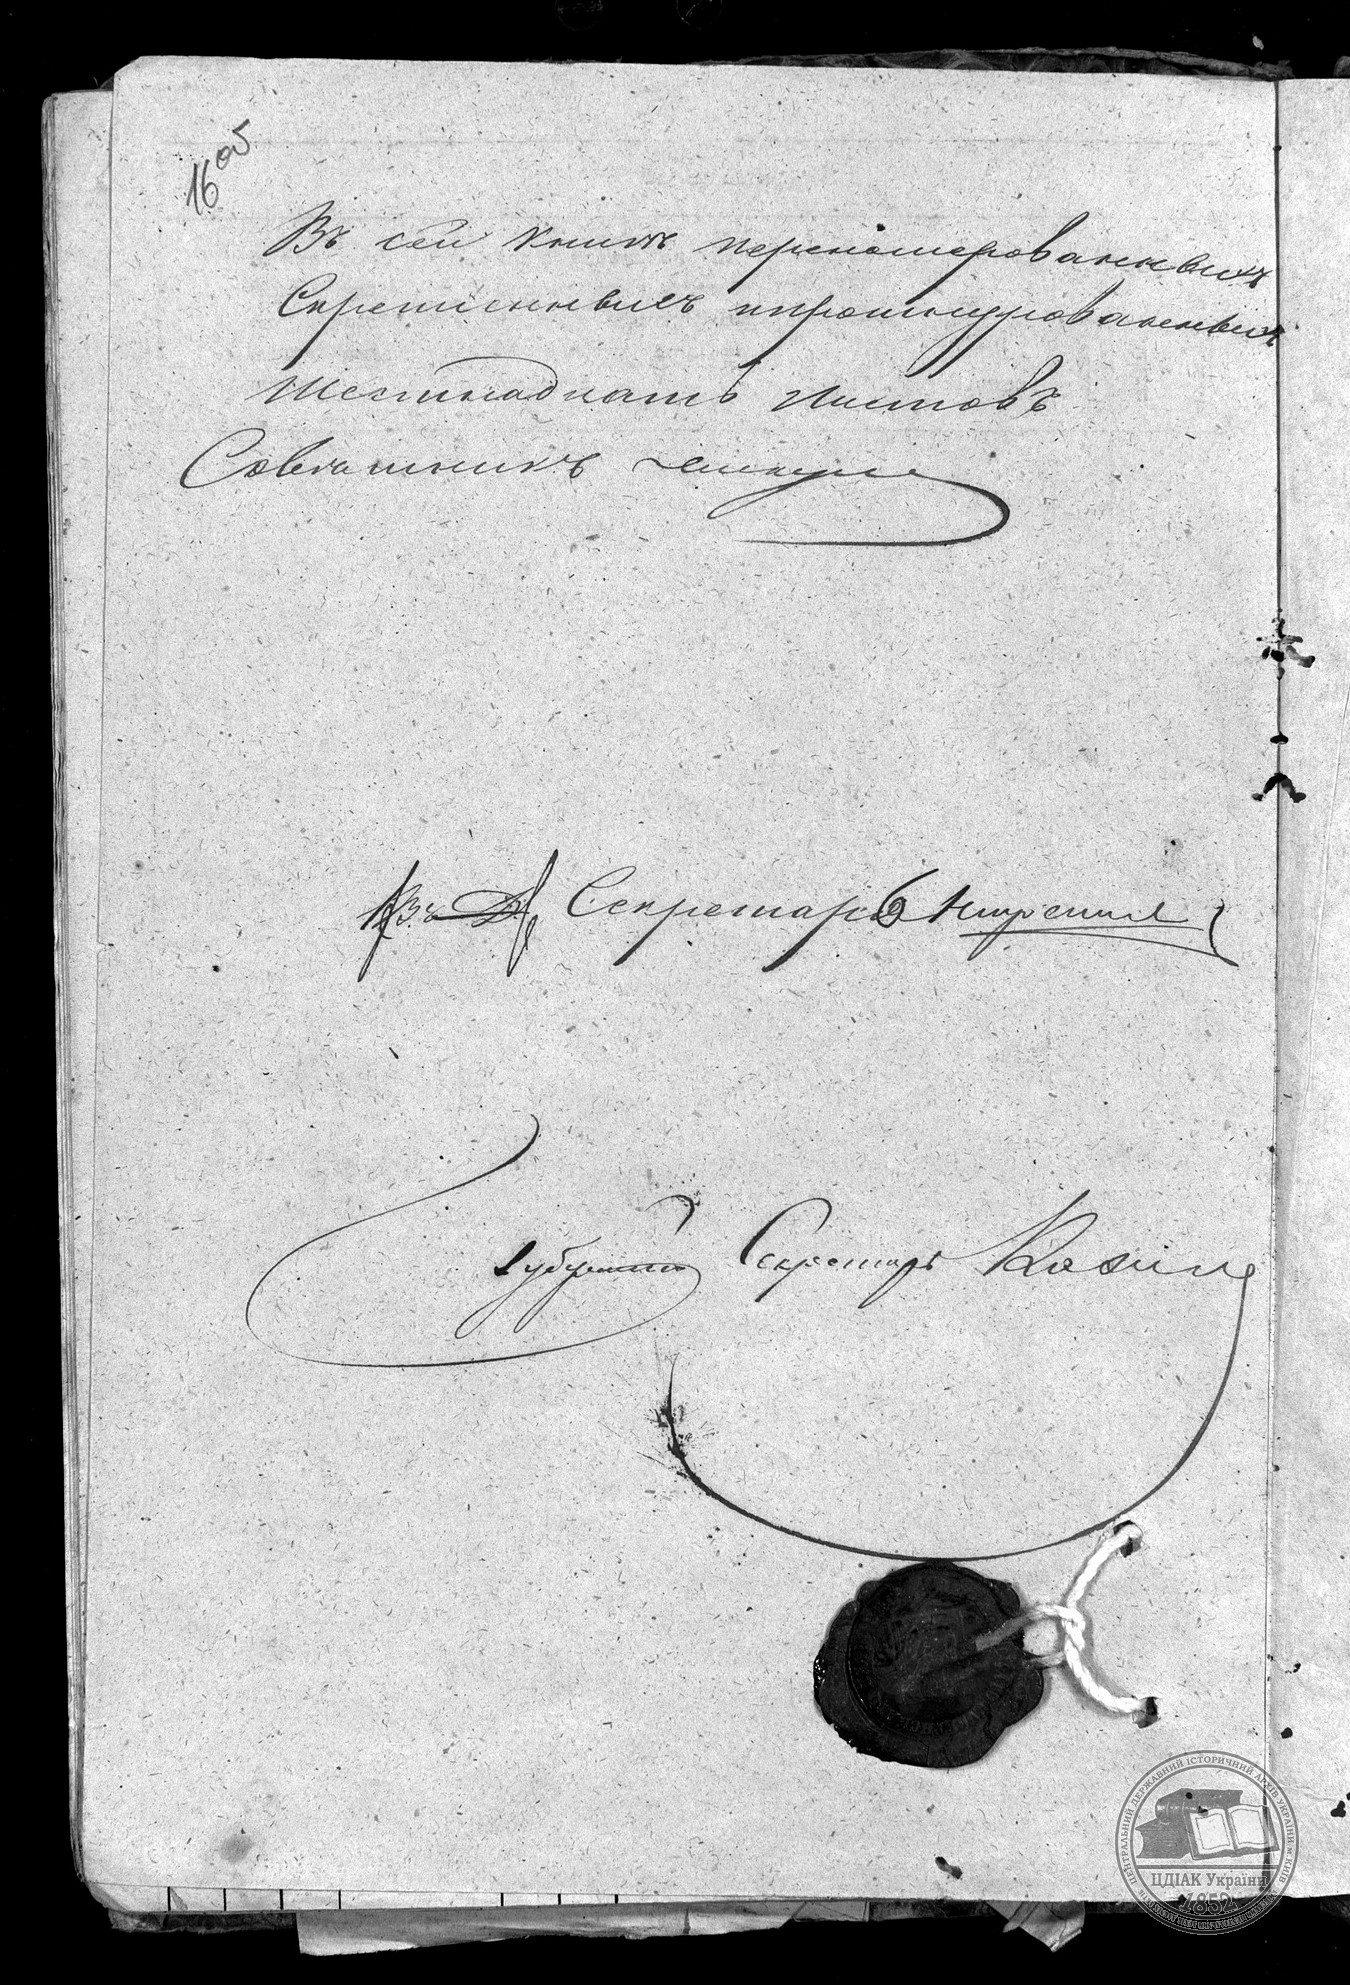 16 об
Въ сей книге перенумерованныхъ
Скрепленныхъ ипрошнурованныхъ
Шестнадцать Листовъ
Советникъ
Секретарь
Губернскій Секретарь
ЦЕНТРАЛЬНИЙ ДЕРЖАВНИЙ ІСТОРИЧНИЙ АРХІВ УКРАЇНИ М.КИЇВ
ЦДІАК України
1852